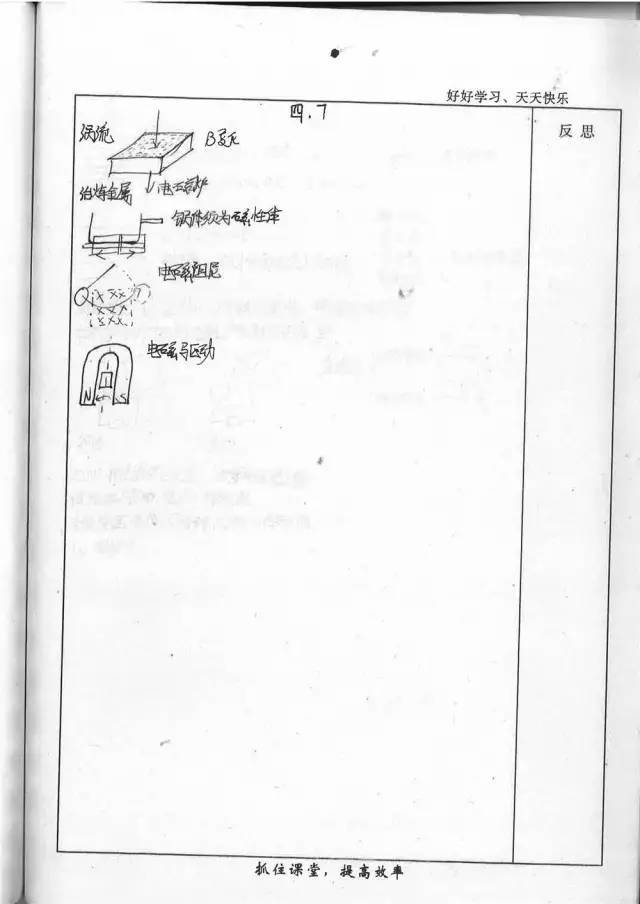 好好学习、天天快乐
四.7
反思
涡流 B变化
冶炼金属 电磁炉
锅体须为磁性体
电磁阻尼
电磁驱动
N S
抓住课堂，提高效率